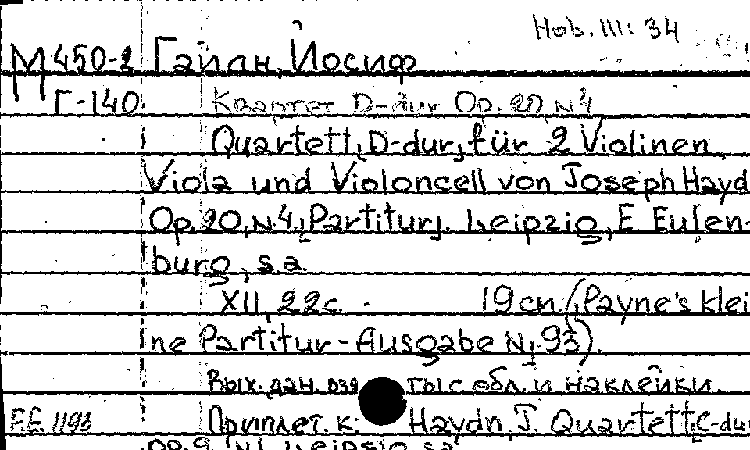 Hob. III: 34
М 450-2 Гайдн, Йосиф
Г-140
Квартет D-dur Op. 20, N 4
Quartett, D-dur, für 2 Violinen,
Viola und Violoncell von Joseph Hayd
Op. 20, N. 4, [Partitur]. Leipzig, E Eulen-
burg, s.a
XII, 22 с. 19 cm. (Payne's klei
ne Partitur-Ausgabe N. 93).
Вых. дан. взяты с обл. и наклейки.
E.E. 1193 Приплет. к: Haydn, J. Quartett, C-du
op. 9, N 1. Leipzig, s.a